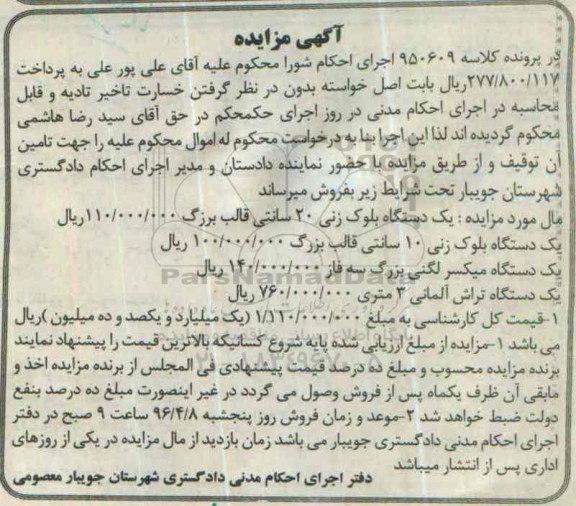 آگهی مزایده
در پرونده کلاسه ۹۵۰۶۰۹ اجرای احکام شورا محکوم علیه آقای علی پور علی به پرداخت
۲۷۷/۸۰۰/۱۱۷ریال بابت اصل خواسته بدون در نظر گرفتن خسارت تاخیر تادیه و قابل
محاسبه در اجرای احکام مدنی در روز اجرای حکمحکم در حق آقای سید رضا هاشمی
محکوم گردیده اند لذا این اجرا بنا به درخواست محکوم له اموال محکوم علیه را جهت تامین
آن توقیف و از طریق مزایده با حضور نماینده دادستان و مدیر اجرای احکام دادگستری
شهرستان جویبار تحت شرایط زیر بفروش میرساند
مال مورد مزایده : یک دستگاه بلوک زنی ۲۰ سانتی قالب برزگ ۱۱۰/۰۰۰/۰۰۰ریال
یک دستگاه بلوک زنی ۱۰ سانتی قالب بزرگ ۱۰۰/۰۰۰/۰۰۰ ریال
یک دستگاه میکسر لگنی بزرگ سه فاز ۱۴۰/۰۰۰/۰۰۰ ریال
یک دستگاه تراش آلمانی ۳ متری ۷۶۰/۰۰۰/۰۰۰ ریال
۱-قیمت کل کارشناسی به مبلغ ۱/۱۱۰/۰۰۰/۰۰۰ (یک میلیارد و یکصد و ده میلیون )ریال
می باشد ۱-مزایده از مبلغ ارزیابی شده پایه شروع کسانیکه بالاترین قیمت را پیشنهاد نمایند
برنده مزایده محسوب و مبلغ ده درصد قیمت پیشنهادی فی المجلس از برنده مزایده اخذ و
مابقی آن ظرف یکماه پس از فروش وصول می گردد در غیر اینصورت مبلغ ده درصد بنفع
دولت ضبط خواهد شد ۲-موعد و زمان فروش روز پنجشبه ۹۶/۴/۸ ساعت ۹ صبح در دفتر
اجرای احکام مدنی دادگستری جویبار می باشد زمان بازدید از مال مزایده در یکی از روزهای
اداری پس از انتشار میباشد
دفتر اجرای احکام مدنی دادگستری شهرستان جویبار معصومی
ParsNamadData